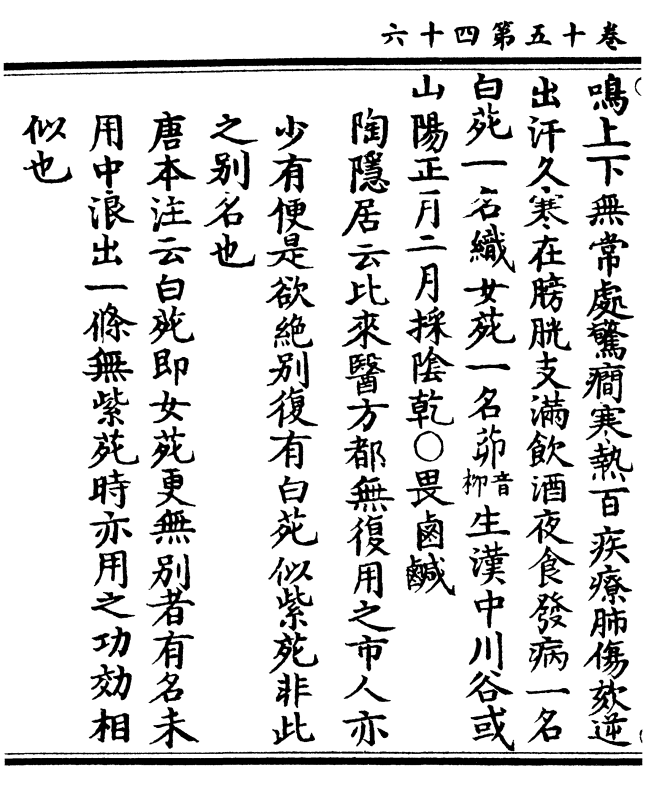 卷十五第四十六
鳴上下無常處驚癇寒熱百疾療肺傷欬逆
出汗久寒在膀胱支滿飲酒夜食發病一名
白菀一名織女菀一名茆音柳生漢中川谷或
山陽正月二月採陰乾○畏鹵鹹
陶隱居云比來醫方都無復用之市人亦
少有便是欲絕別復有白菀似紫菀非此
之別名也
唐本注云白菀即女菀更無別者有名未
用中浪出一條無紫菀時亦用之功効相
似也